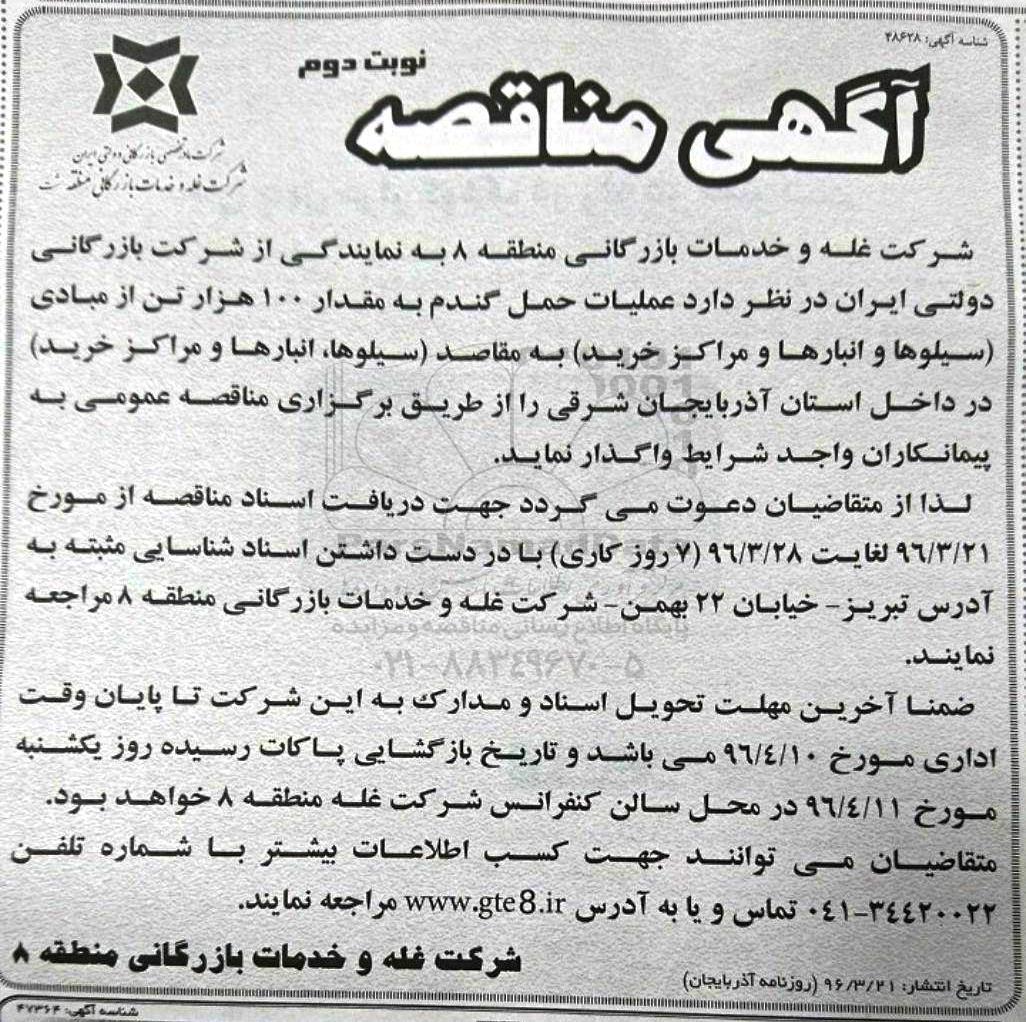 شناسه آگهی: ۴۸۶۲۸
نوبت دوم
آگهی مناقصه
شرکت مادر تخصصی بازرگانی دولتی ایران
شرکت غله و خدمات بازرگانی منطقه هشت
شرکت غله و خدمات بازرگانی منطقه ۸ به نمایندگی از شرکت بازرگانی
دولتی ایران در نظر دارد عملیات حمل گندم به مقدار ۱۰۰ هزار تن از مبادی
(سیلوها و انبارها و مراکز خرید) به مقاصد (سیلوها، انبارها و مراکز خرید)
در داخل استان آذربایجان شرقی را از طریق برگزاری مناقصه عمومی به
پیمانکاران واجد شرایط واگذار نماید.
لذا از متقاضیان دعوت می گردد جهت دریافت اسناد مناقصه از مورخ
۹۶/۳/۲۱ لغایت ۹۶/۳/۲۸ (۷ روز کاری) با در دست داشتن اسناد شناسایی مثبته به
آدرس تبریز- خیابان ۲۲ بهمن- شرکت غله و خدمات بازرگانی منطقه ۸ مراجعه
نمایند.
ParsNamadData
پایگاه اطلاع رسانی مناقصه و مزایده
۰۲۱-۸۸۳۴۹۶۷۰-۵
ضمنا آخرین مهلت تحویل اسناد و مدارک به این شرکت تا پایان وقت
اداری مورخ ۹۶/٤/۱۰ می باشد و تاریخ بازگشایی پاکات رسیده روز یکشنبه
مورخ ۹۶/٤/۱۱ در محل سالن کنفرانس شرکت غله منطقه ۸ خواهد بود.
متقاضیان می توانند جهت کسب اطلاعات بیشتر با شماره تلفن
۰٤۱-۳٤٤۲۰۰۲۲ تماس و یا به آدرس www.gte8.ir مراجعه نمایند.
شرکت غله و خدمات بازرگانی منطقه ۸
تاریخ انتشار: ۹۶/۳/۲۱ (روزنامه آذربایجان)
شناسه آگهی: ۴۷۳۶۴